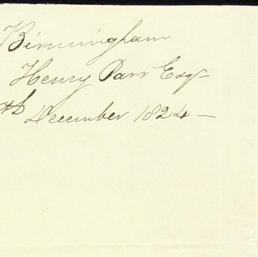 Birmingham
Henry Parr Esqr
th December 1824 —